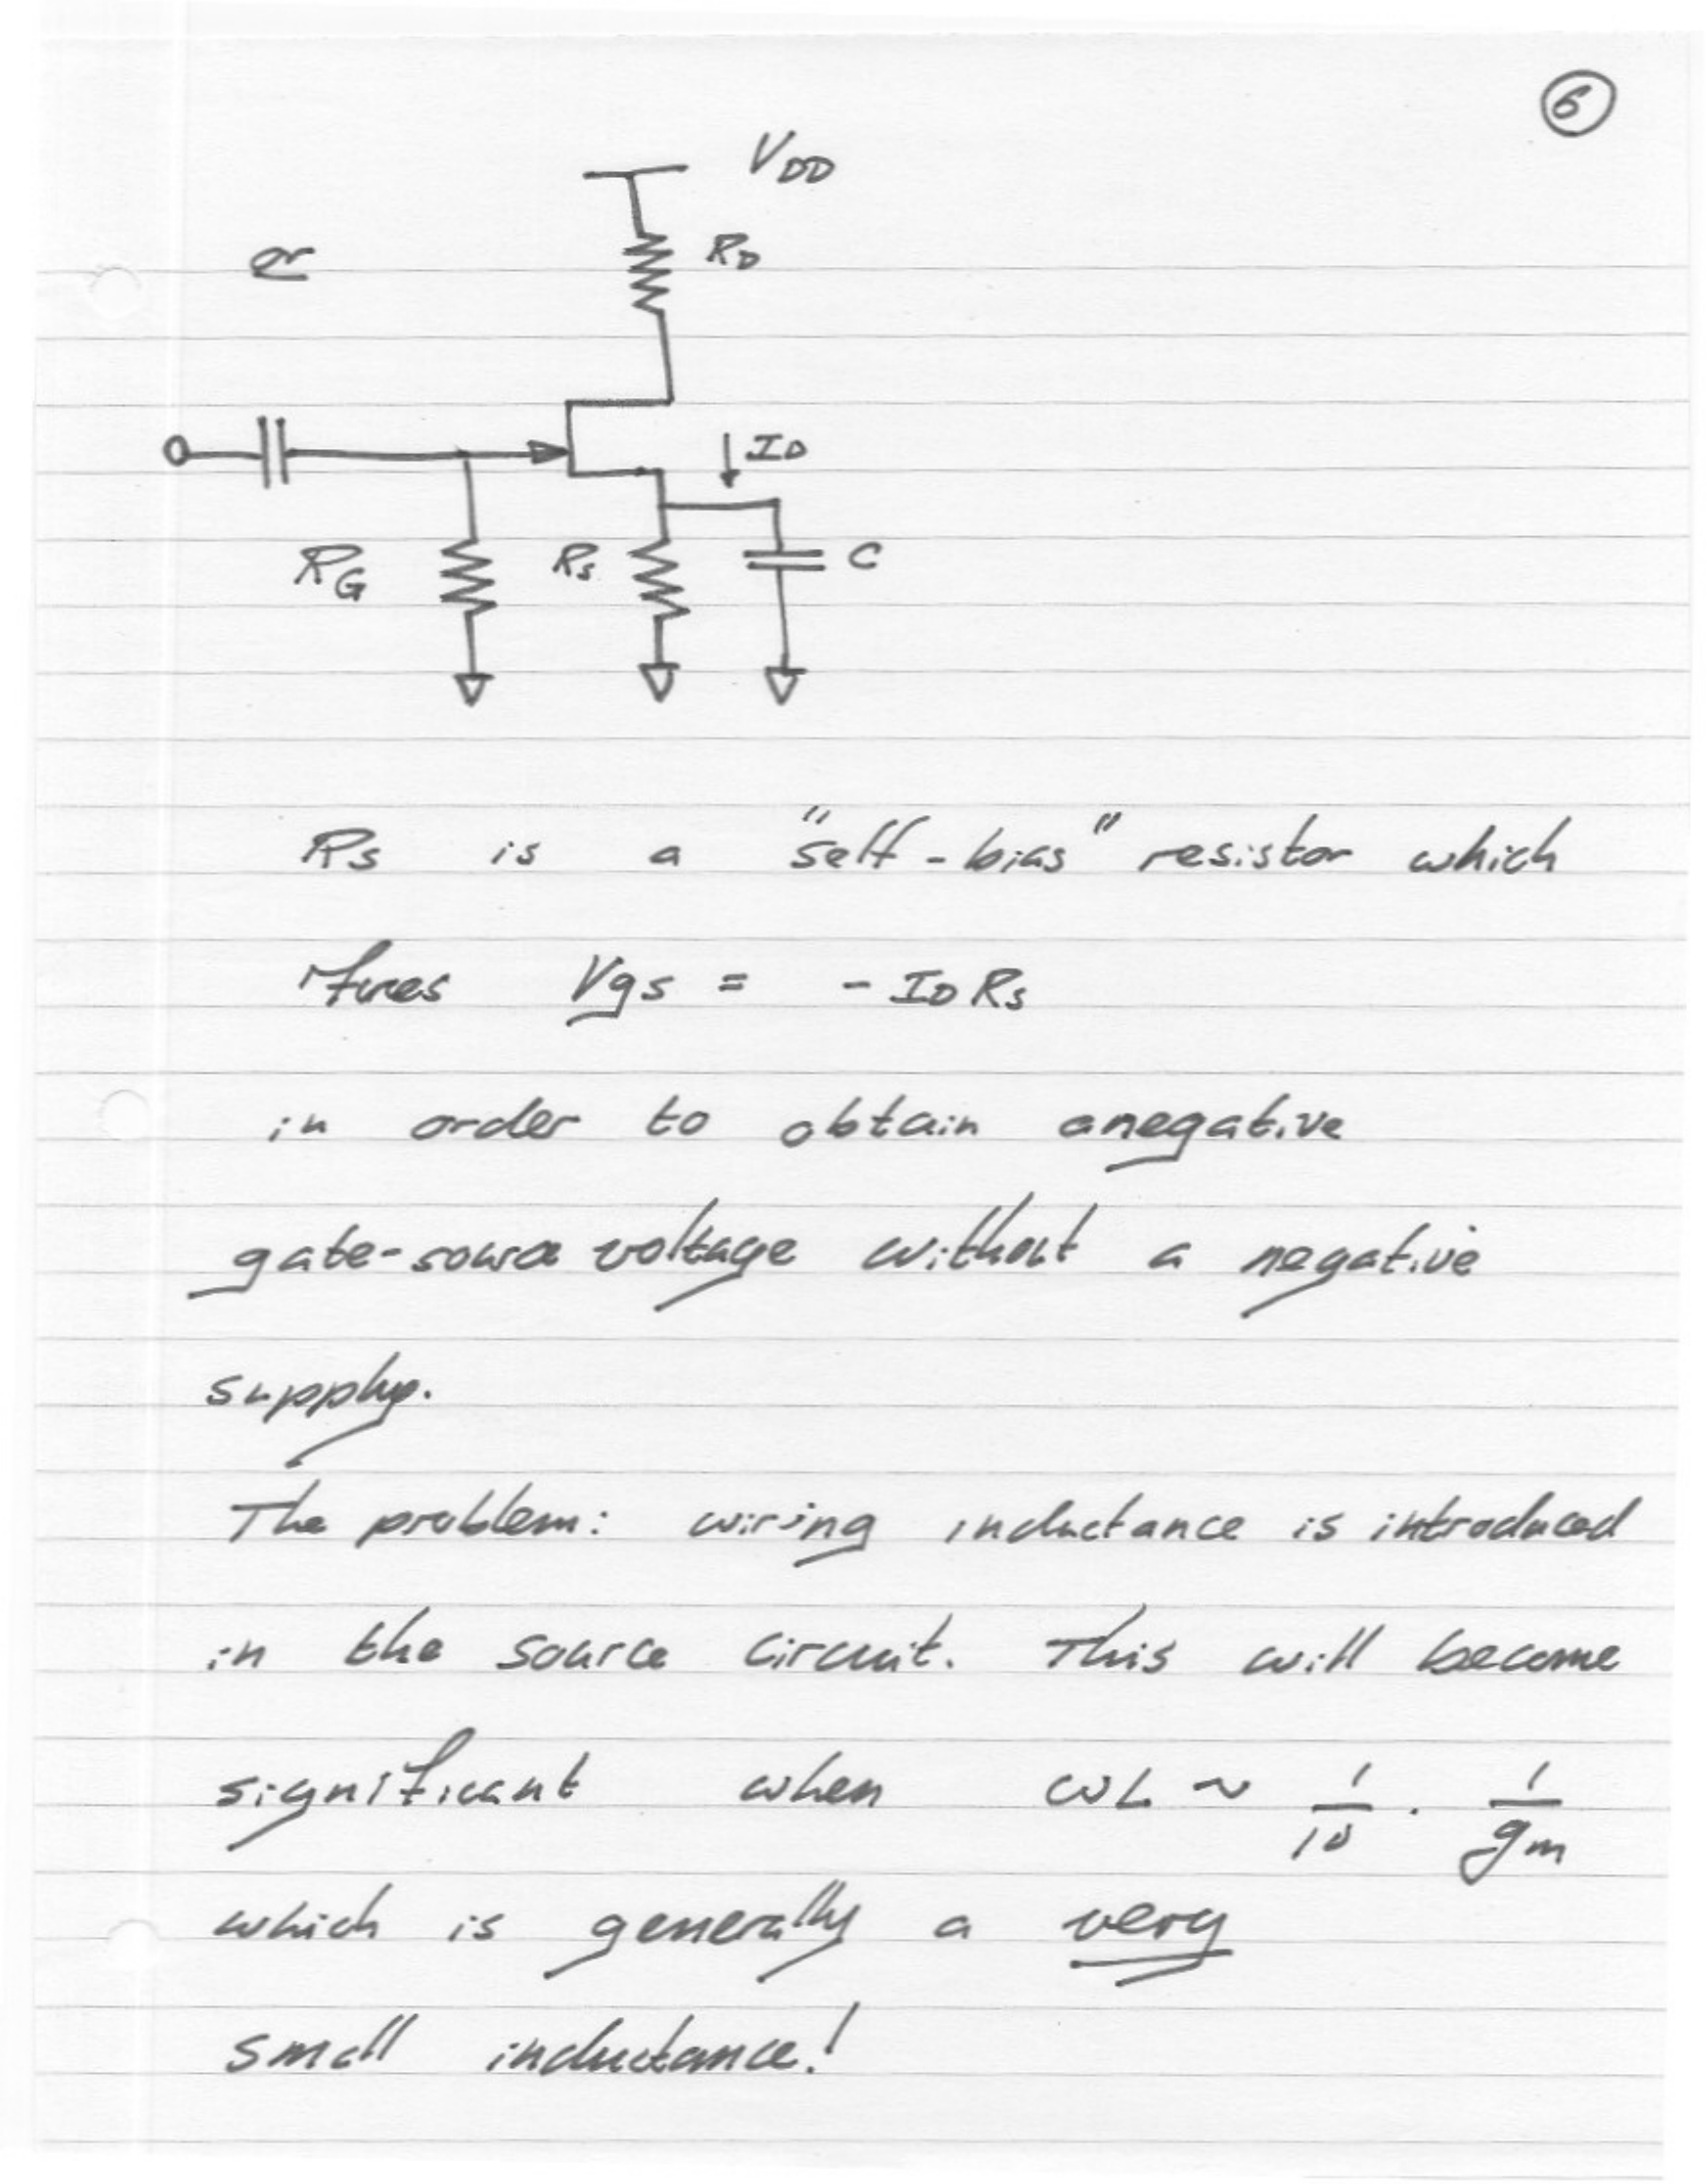 6
V_DD
or
R_D
I_D
R_G
R_S
C
Rs is a "self-bias" resistor which
Vgs = - I_D R_s
in order to obtain a negative
gate-source voltage without a negative
supply.
The problem: wiring inductance is introduced
in the source circuit. This will become
significant when ωL ~ 1/10 · 1/gm
which is generally a very
small inductance!